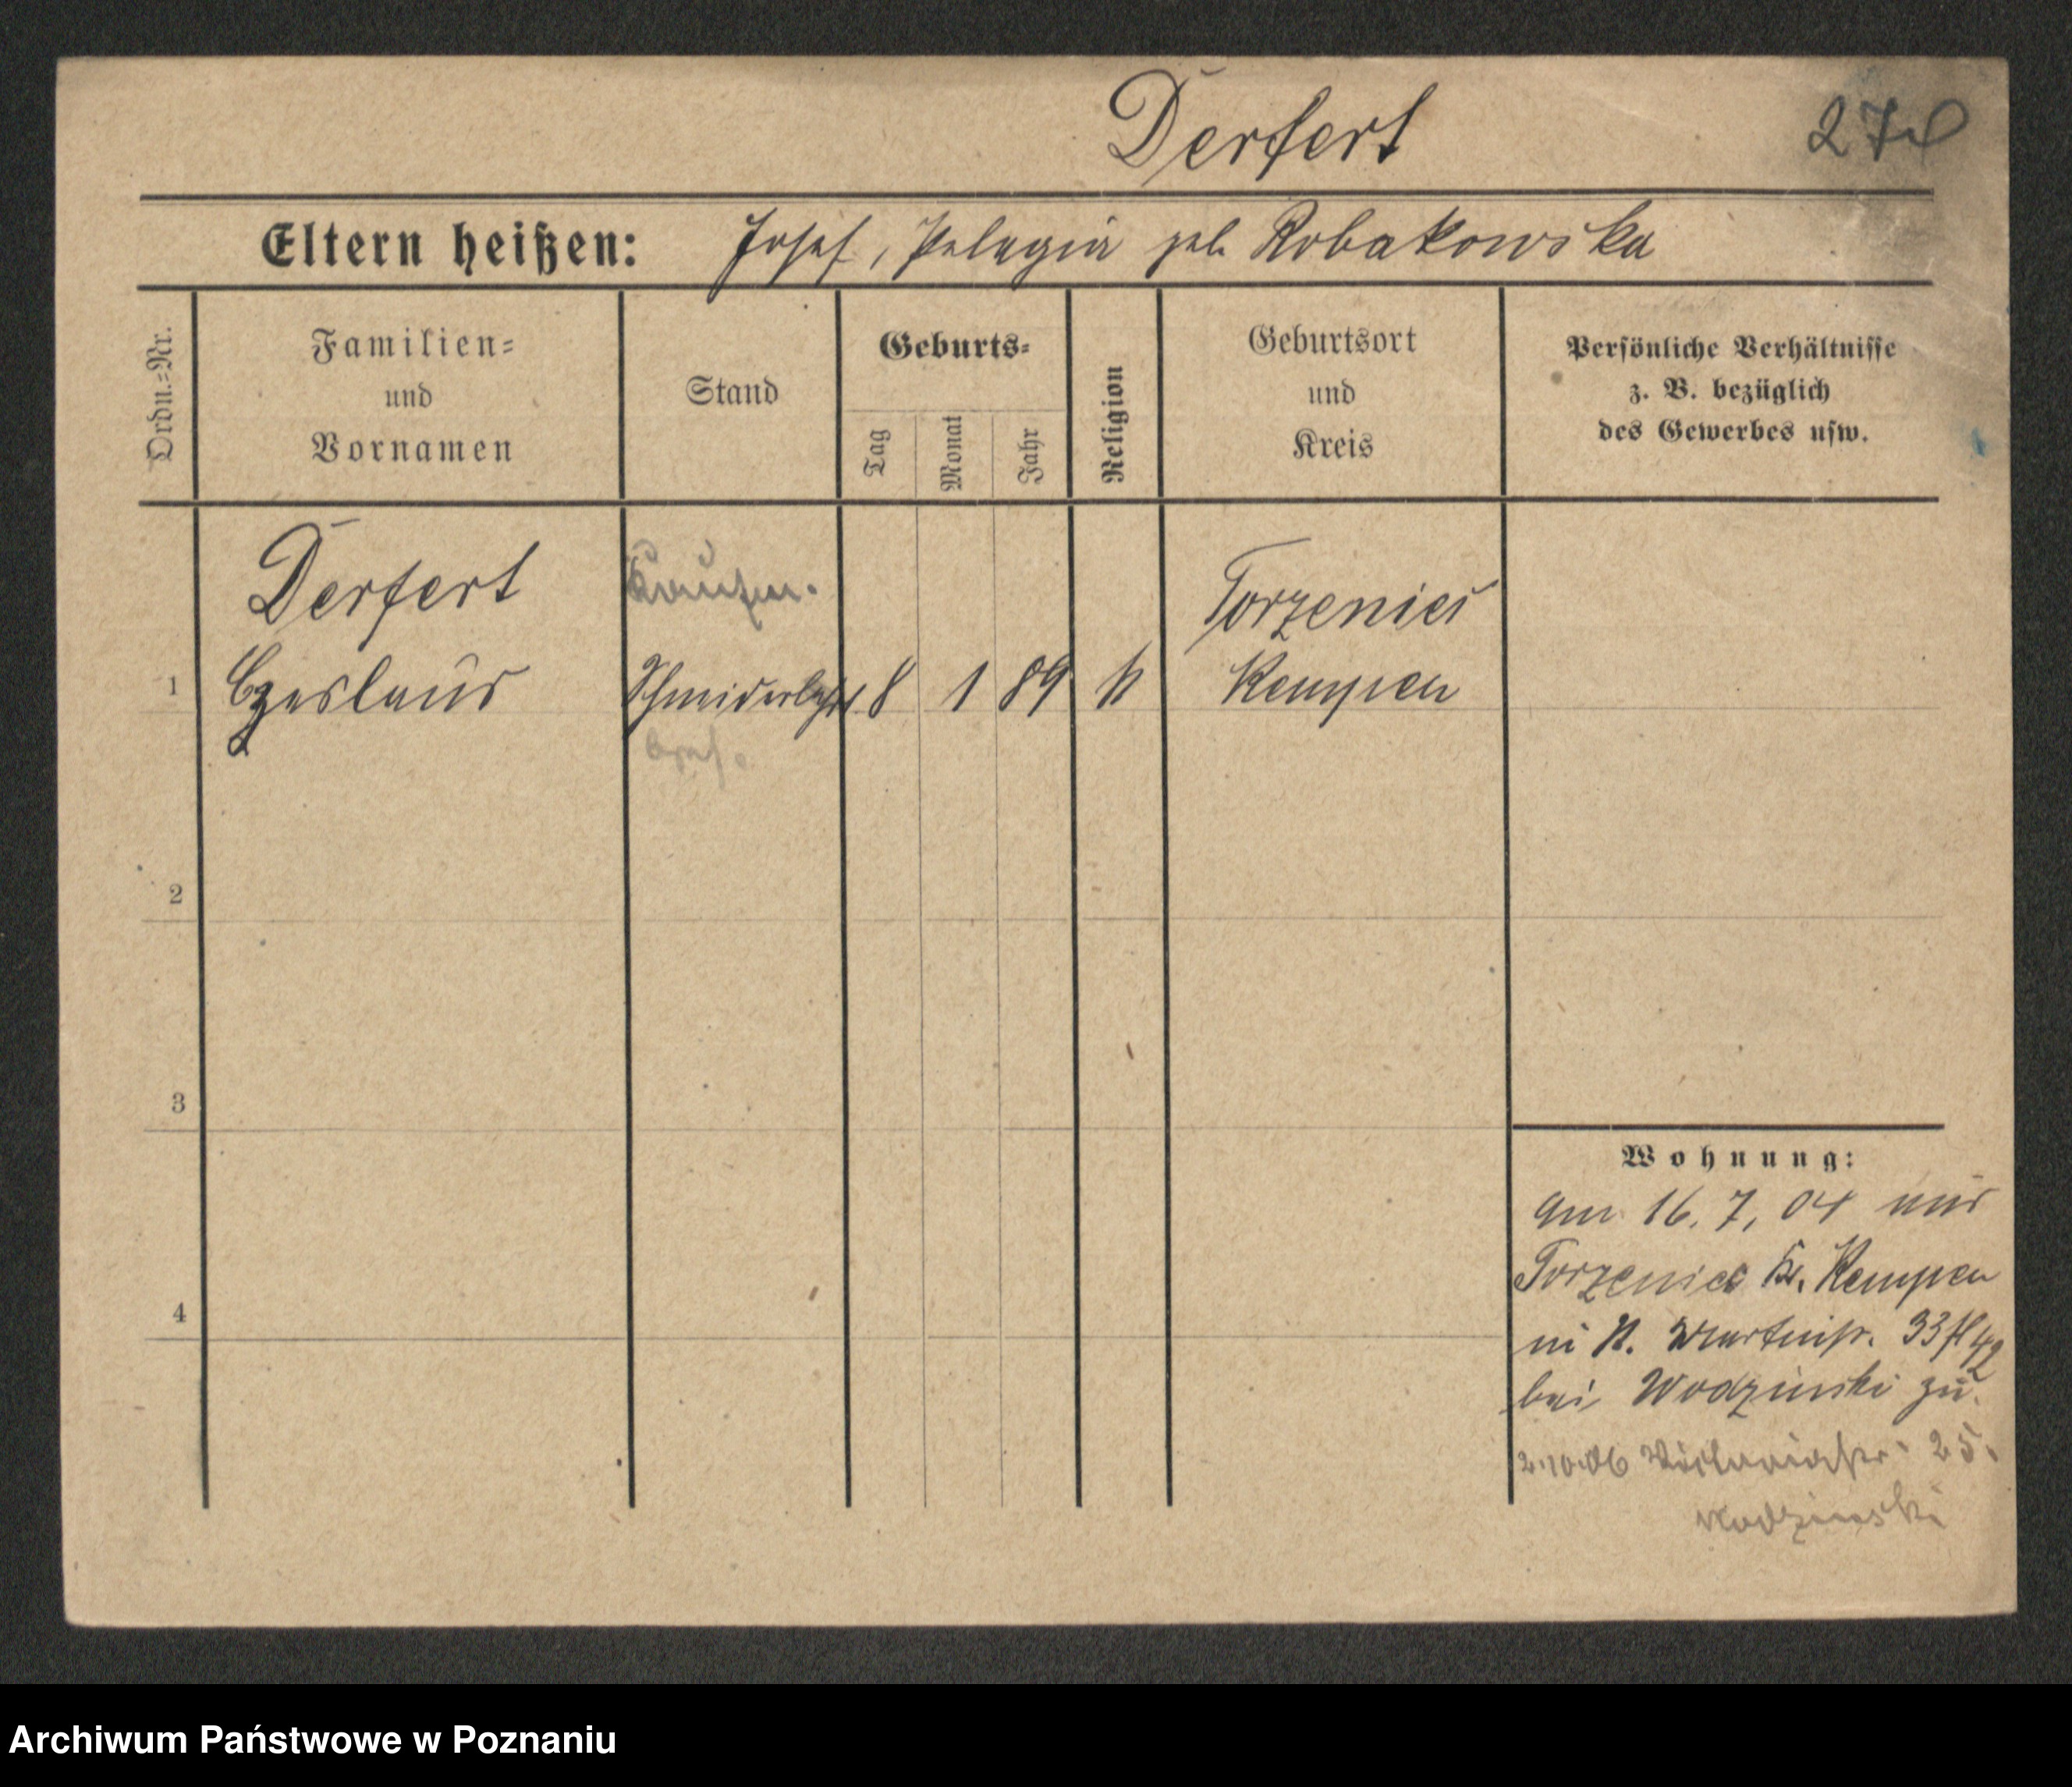 Derfert
Eltern heißen: Josef, Pelagia geb. Robakowska
Ordn.-Nr.
Familien-
und
Vornamen
Stand
Geburts-
Tag
Monat
Jahr
Religion
Geburtsort
und
Kreis
Persönliche Verhältnisse
z. B. bezüglich
des Gewerbes usw.
Derfert
Torzeniec
1 Czeslaus 8 1 89 k Kempen
2
3
4
Wohnung:
Am 16. 7. 04 aus
Torzeniec Kr. Kempen
in N. 33
bei Wodzinski zu.
2.10.06 25.
Wodzinski
Archiwum Państwowe w Poznaniu